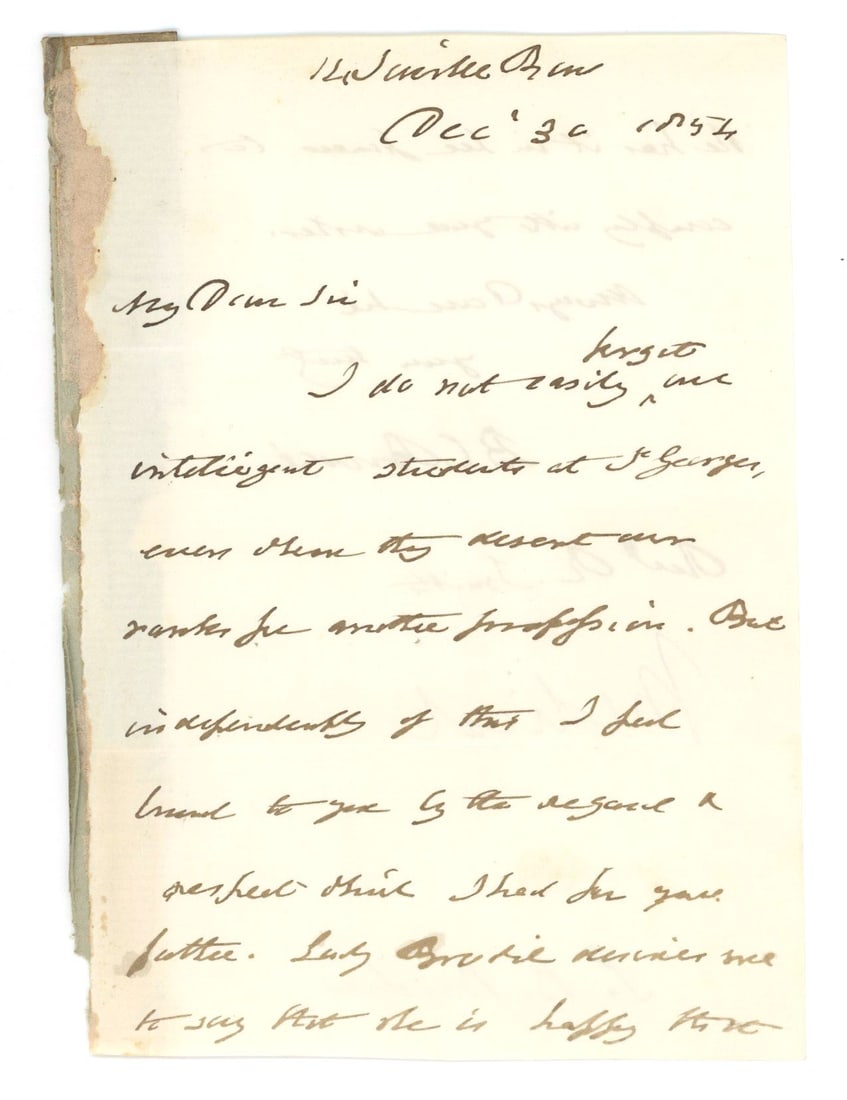 14, Saville Row
Decr 30 1854
My Dear Sir
forget
I do not easily ^ our
intelligent students at St Georges,
even when they desert our
ranks for another profession. But
independently of this I feel
bound to you by the regard &
respect which I had for your
father. Lady Brodie desires me
to say that she is happy that